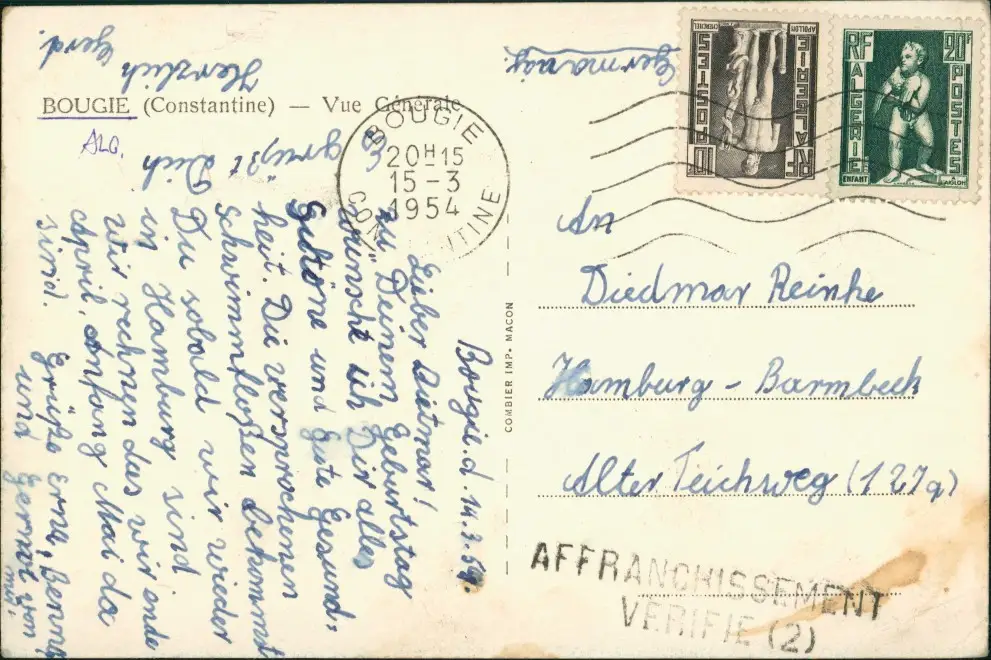 BOUGIE (Constantine) — Vue Générale
ALG.
Bougie.d. 14.3.54.
Lieber Dietmar!
zu Deinem Geburtstag
wünsche ich Dir alles
Gute und gute Gesund,
heit. Die versprochenen
Schwimmfloßen bekommst
Du sobald wir wieder
in Hamburg sind.
wir rechnen das wir ende
April, Anfang Mai da
sind.
Grüße Erna, Benno
und Gernot von
mir.
Es grüßt Dich
Herzlich
Gerd.
COMBIER IMP. MACON
BOUGIE
20H15
15-3
1954
CONSTANTINE
POSTES
ALGERIE
RF
10
APOLLON
CHERCHEL
RF
20F
ALGERIE
POSTES
ENFANT
A
L'AIGLON
Germany.
An
Diedmar Reinke
Hamburg - Barmbeck
Alter Teichweg (127a)
AFFRANCHISSEMENT
VERIFIE (2)